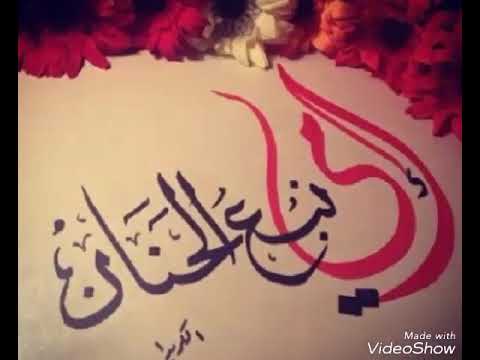 أمي
نبع الحنانُ
Made with
VideoShow